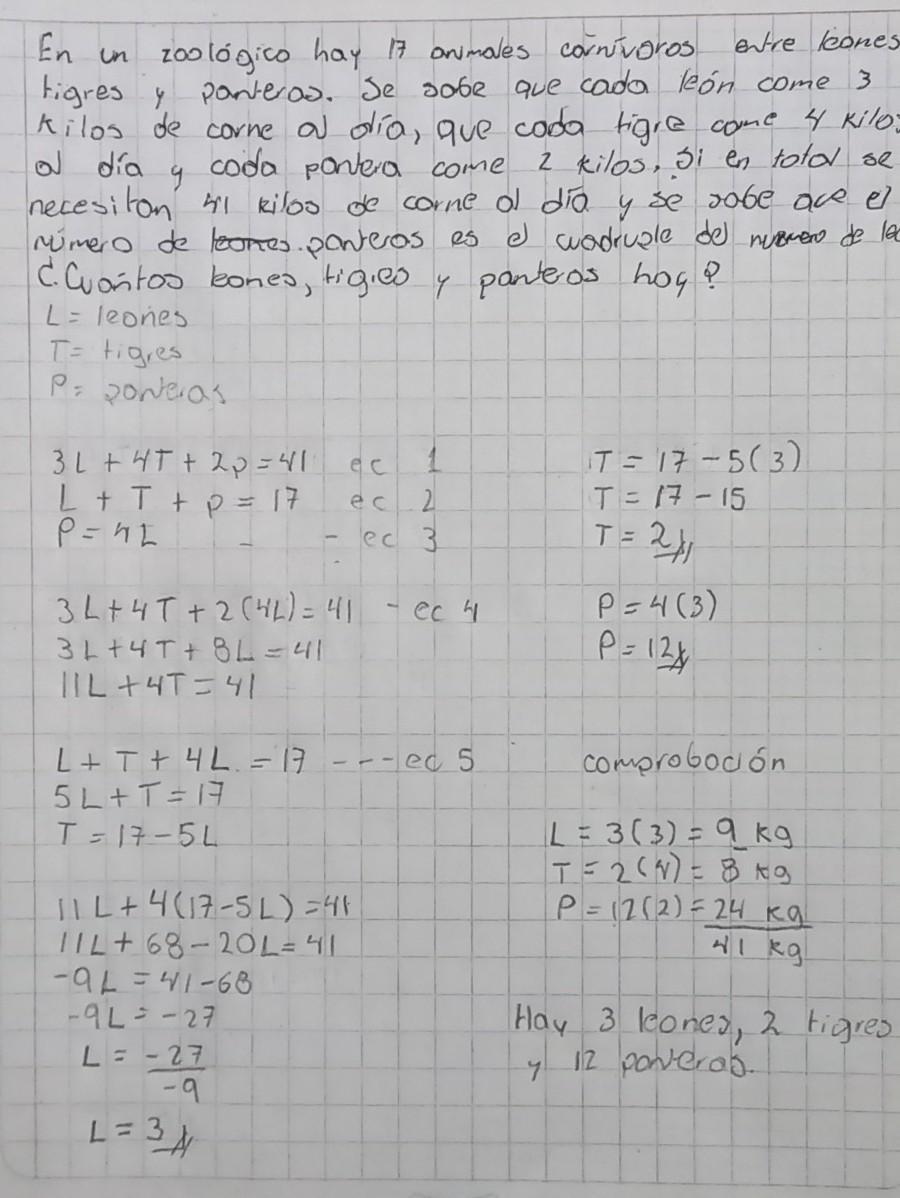 En un zoológico hay 17 animales carnívoros entre leones
tigres y panteras. Se sabe que cada león come 3
kilos de carne al día, que cada tigre come 4 kilos
al día y cada pantera come 2 kilos, Si en total se
necesitan 41 kilos de carne al día y se sabe que el
número de leones panteras es el cuadruple del numero de leo
¿Cuántos leones, tigres y panteras hay?
L = leones
T = tigres
P = panteras
3L + 4T + 2p = 41 ec 1
L + T + p = 17 ec 2
P = 4L - - ec 3
3L + 4T + 2(4L) = 41 - ec 4
3L + 4T + 8L = 41
11L + 4T = 41
L + T + 4L = 17 --- ec 5
5L + T = 17
T = 17 - 5L
11L + 4(17-5L) = 41
11L + 68 - 20L = 41
-9L = 41 - 68
-9L = -27
L = -27
-9
L = 3
T = 17 - 5(3)
T = 17 - 15
T = 2
P = 4(3)
P = 12
comprobación
L = 3(3) = 9 kg
T = 2(4) = 8 kg
P = 12(2) = 24 kg
41 kg
Hay 3 leones, 2 tigres
y 12 panteras.